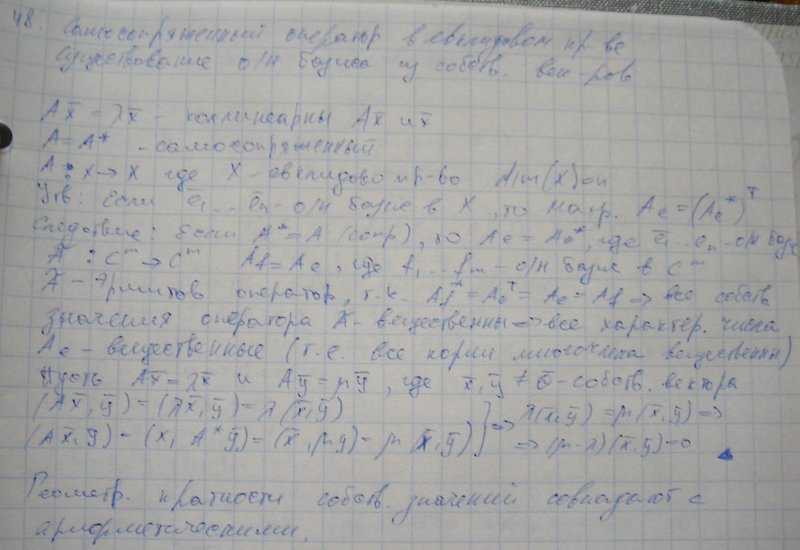 48. Самосопряженный оператор в евклидовом пр-ве
Существование о/н базиса из собств. век-ров
Ax̄ = λx̄ - коллинеарны Ax̄ и x̄
A = A* - самосопряженный
A: X → X где X - евклидово пр-во dim(X)=n
Утв: Если ē₁...ēn - о/н базис в X, то матр. Ae = (Ae*)ᵀ
Следствие: Если A* = A (сопр), то Ae = Ae*, где ē₁...ēn - о/н базис
Ã: Cᵐ → Cᵐ Af = Ae, где f₁...fm - о/н базис в Cᵐ
Ã - Эрмитов оператор, т.к. Afᵀ = Aeᵀ = Ae = Af ⇒ все собств.
значения оператора Ã - вещественны ⇒ все характер. числа
Ae - вещественные (т.е. все корни многочлена вещественны)
Пусть Ax̄ = λx̄ и Aȳ = μȳ, где x̄, ȳ ≠ Θ - собств. вектора
(Ax̄, ȳ) = (λx̄, ȳ) = λ(x̄, ȳ)
(Ax̄, ȳ) = (x, A*ȳ) = (x̄, μȳ) = μ(x̄, ȳ) } ⇒ λ(x, ȳ) = μ(x, ȳ) ⇒
⇒ (μ-λ)(x̄, ȳ) = 0
Геометр. кратности собств. значений совпадают с
арифметическими.